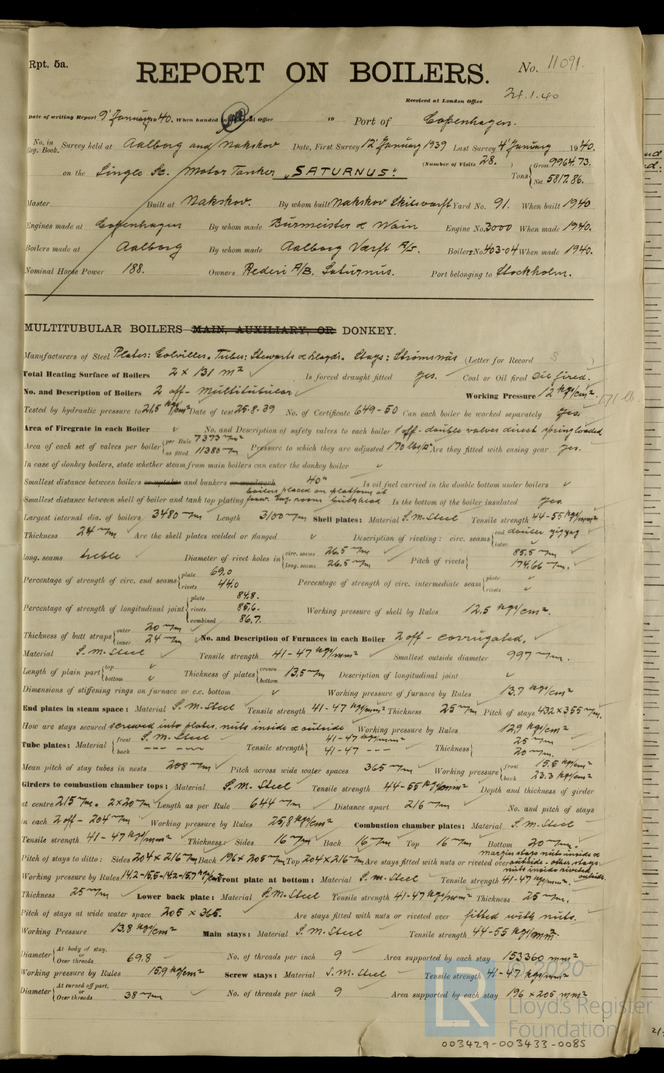 Rpt. 5a.
No. 11091.
REPORT ON BOILERS.
Received at London Office
24.1.40
Date of writing Report 9' January 1940. When handed in at Local Office 19 Port of Copenhagen.
No. in Reg. Book. Survey held at Aalborg and Nakskov Date, First Survey 12' January 1939 Last Survey 4' January 1940.
(Number of Visits 28.
on the Single Sc. Motor Tanker "SATURNUS" Tons { Gross 9964.73. Net 5817.86.
Master Built at Nakskov. By whom built Nakskov Skibsværft Yard No. 91. When built 1940
Engines made at Copenhagen By whom made Burmeister & Wain Engine No. 3000 When made 1940.
Boilers made at Aalborg By whom made Aalborg Værft A/S. Boiler No. 403-04 When made 1940.
Nominal Horse Power 188. Owners Rederi A/B. Saturnus. Port belonging to Stockholm.
MULTITUBULAR BOILERS MAIN, AUXILIARY, OR DONKEY.
Manufacturers of Steel Plates: Colvilles. Tubes: Stewarts & Lloyds. Stays: Strömsnäs (Letter for Record S )
Total Heating Surface of Boilers 2 x 131 m² Is forced draught fitted yes. Coal or Oil fired Oil fired.
No. and Description of Boilers 2 off - Multitubular Working Pressure 12 kg/cm². 171 lb
Tested by hydraulic pressure to 21,5 kg/cm² Date of test 25.8.39 No. of Certificate 649-50 Can each boiler be worked separately yes.
Area of Firegrate in each Boiler No. and Description of safety valves to each boiler 1 off - double valves direct spring loaded
Area of each set of valves per boiler { per Rule 7373 mm² as fitted 11380 mm² Pressure to which they are adjusted 170 lbs/□" Are they fitted with easing gear yes.
In case of donkey boilers, state whether steam from main boilers can enter the donkey boiler
Smallest distance between boilers or uptakes and bunkers or woodwork 40" Is oil fuel carried in the double bottom under boilers
boilers placed on platform at
Smallest distance between shell of boiler and tank top plating Is the bottom of the boiler insulated yes
Largest internal dia. of boilers 3480 mm Length 3100 mm Shell plates: Material S.M. Steel Tensile strength 44-55 kg/mm²
Thickness 24 mm Are the shell plates welded or flanged Description of riveting: circ. seams { end double zigzag inter.
long. seams treble Diameter of rivet holes in { circ. seams 26.5 mm long. seams 26.5 mm Pitch of rivets { 85,5 mm 174,66 mm.
Percentage of strength of circ. end seams { plate 69.0 rivets 44.0 Percentage of strength of circ. intermediate seam { plate rivets
Percentage of strength of longitudinal joint { plate 84.8. rivets 85,6. combined 86.7. Working pressure of shell by Rules 12.5 kg/cm².
Thickness of butt straps { outer 20 mm inner 24 mm No. and Description of Furnaces in each Boiler 2 off - corrugated,
Material S.M. Steel Tensile strength 41-47 kg/mm² Smallest outside diameter 997 mm.
Length of plain part { top bottom Thickness of plates { crown bottom 13,5 mm Description of longitudinal joint
Dimensions of stiffening rings on furnace or c.c. bottom Working pressure of furnace by Rules 13.7 kg/cm²
End plates in steam space: Material S.M. Steel Tensile strength 41-47 kg/mm² Thickness 25 mm Pitch of stays 432 x 355 mm.
How are stays secured screwed into plates, nuts inside & outside Working pressure by Rules 12.9 kg/cm²
Tube plates: Material { front S.M. Steel back --- --- Tensile strength { 41-47 kg/mm² 41-47 --- Thickness { 25 mm 20 mm.
Mean pitch of stay tubes in nests 208 mm Pitch across wide water spaces 365 mm Working pressure { front 15.5 kg/cm² back 23.3 kg/cm²
Girders to combustion chamber tops: Material S.M. Steel Tensile strength 44-55 kg/mm² Depth and thickness of girder
at centre 215 mm. 2x20 mm Length as per Rule 644 mm Distance apart 216 mm No. and pitch of stays
in each 2 off - 204 mm Working pressure by Rules 25,8 kg/cm² Combustion chamber plates: Material S.M. Steel
Tensile strength 41-47 kg/mm² Thickness: Sides 16 mm Back 16 mm Top 16 mm Bottom 20 mm.
margin stays nuts inside &
Pitch of stays to ditto: Sides 204 x 216 mm Back 196 x 205 mm Top 204 x 216 mm Are stays fitted with nuts or riveted over outside - other stays: nuts inside riveted outside.
Working pressure by Rules 14.2-15.5-14.2-15.7 kg/cm² Front plate at bottom: Material S.M. Steel Tensile strength 41-47 kg/mm².
Thickness 25 mm Lower back plate: Material S.M. Steel Tensile strength 41-47 kg/mm² Thickness 25 mm.
Pitch of stays at wide water space 205 x 365. Are stays fitted with nuts or riveted over fitted with nuts.
Working Pressure 13.8 kg/cm² Main stays: Material S.M. Steel Tensile strength 44-55 kg/mm²
Diameter { At body of stay, or Over threads 69,8 No. of threads per inch 9 Area supported by each stay 153360 mm²
Working pressure by Rules 15.9 kg/cm² Screw stays: Material S.M. Steel Tensile strength 41-47 kg/mm²
Diameter { At turned off part, or Over threads 38 mm No. of threads per inch 9 Area supported by each stay 196 x 205 mm²
LR
Lloyd's Register
Foundation
003429-003433-0085